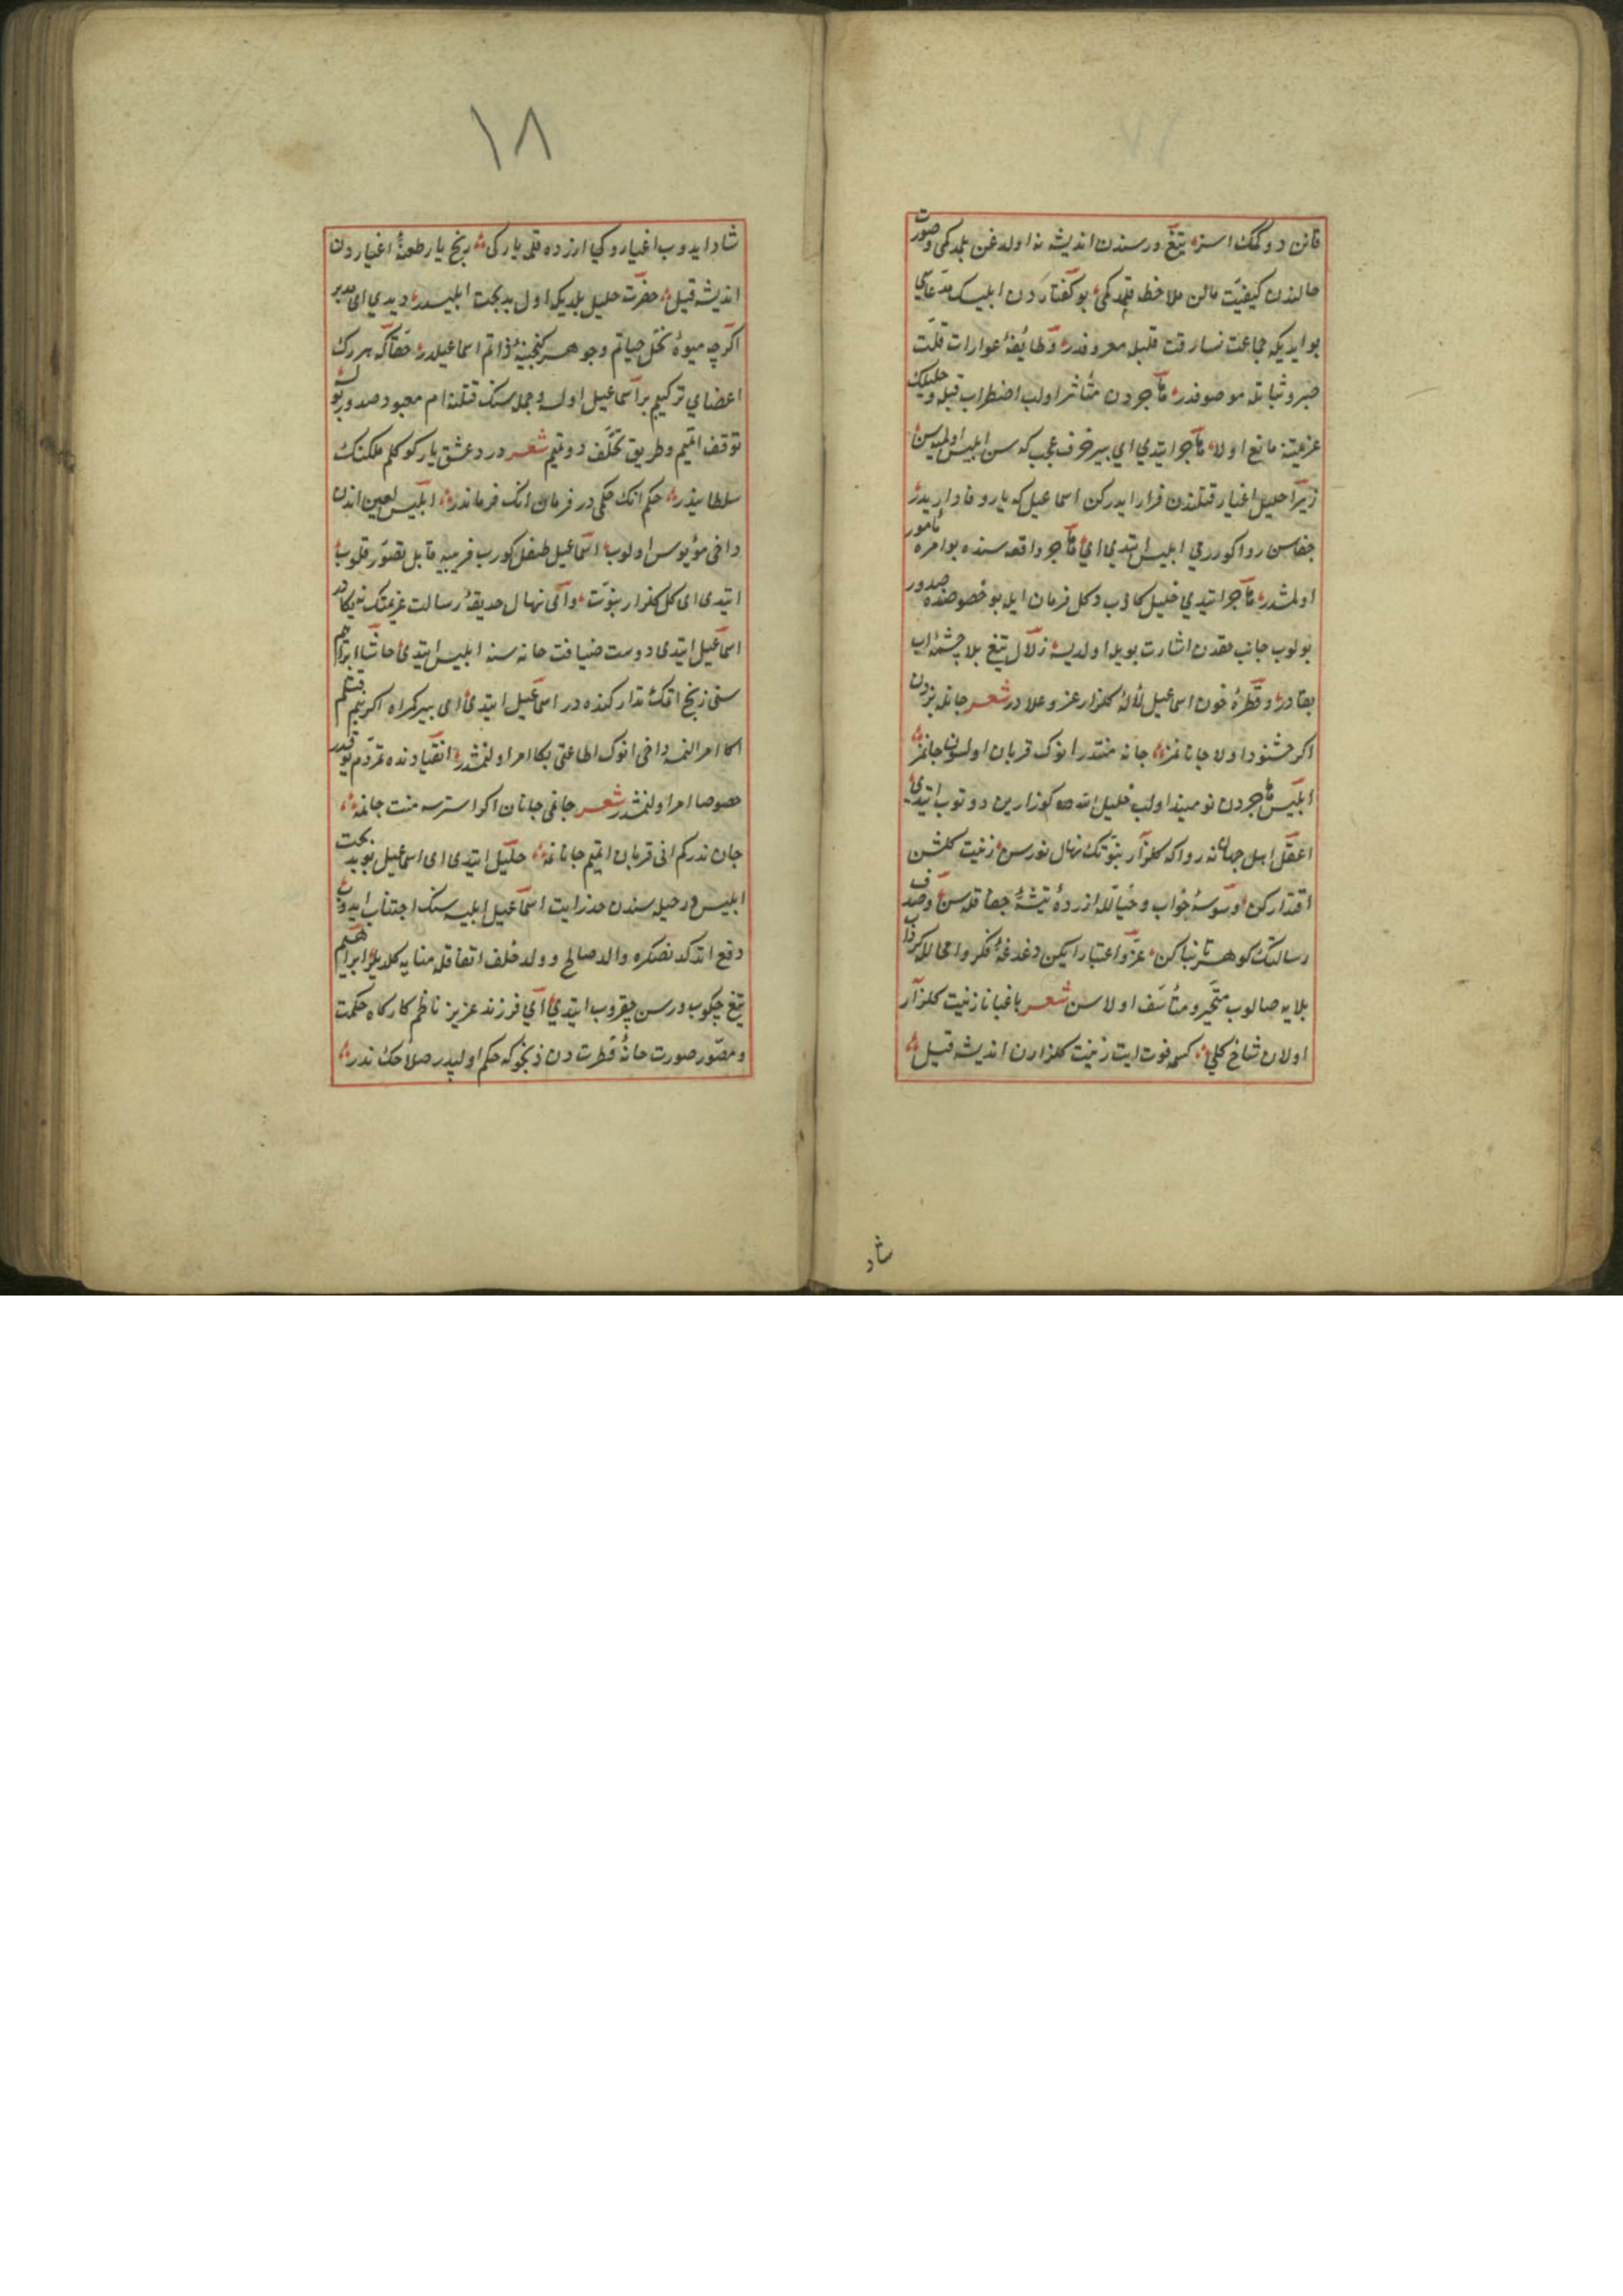 قانن دوكمك استر تيغ درسندن انديشه نه اولدغن بلمدكمى وصورت
حالندن كيفيت مالن ملاحظه قلمدكمى بو كفتاردن ابليسك مدعاسى
بو ايديكه جماعت نسا رقت قلبله معروفدر وطايفهٔ عورات قلت
صبر وثباتله موصوفدر هاجر دن متأثر اولب اضطراب قيله وخليلك
عزيمتنه مانع اولا هاجر ايتدي اي پير خرف عجب كه سن ابليس اولميه سن
زيرا خليل اغيار قتلندن فرار ايدركن اسماعيل كه يار وفاداريدر
جفاسن روا كوررمى ابليس ايتدي اي هاجر واقعه سنده بو امره مأمور
اولمشدر هاجر ايتدي خليل كاذب دكل فرمان ايله بو خصوصده صدور
بولوب جانب حقدن اشارت بويله اولديسه زلال تيغ بلا چشمهٔ اب
بقادر وقطرهٔ خون اسماعيل لالهٔ كلزار عز وعلا در شعر جانله بزدن
اكر خشنود اولا جانانمز جانه منتدر انوك قربان اولسون جانمز
ابليس هاجردن نوميد اولب خليل الله ه كوزارين دوتوب ايتدى اى
اعقل اهل جهان نه روا كه كلزار نبوتك نهال نورسن زينت كلشن
اقتدار كن وسوسهٔ خواب وخيالله ازردهٔ تيشهٔ جفا قله سن وصدف
رسالتك كوهر تابناكن عز واعتبار ايكن دغدغهٔ فكر ومحالله كرداب
بلايه صالوب متحير ومتأسف اولاسن شعر باغبانا زينت كلزار
اولان شاخ كلي كسمه فوت ايت زينت كلزاردن انديشه قيل
شاد
١٨
شاد ايدوب اغيار وكي ازرده قلمه ياركى رنج يار طعنهٔ اغياردن
انديشه قيل حضرت خليل بلديكه اول بدبخت ابليسدر ديدي اى مدبر
اكرچه ميوهٔ نخل حياتم وجوهر كنجينهٔ ذاتم اسماعيلدر حقا كه هر رك
اعضاي تركيبم بر اسماعيل اولسه وجمله سنك قتلنه امر معبود صدور بولسه
توقف ايتميم وطريق تخلف دوتميم شعر درد عشق يار كوكلم ملكنك
سلطانيدر حكم انك حكمى در فرمان انك فرمانيدر ابليس لعين اندن
داخى مؤيوس اولوب اسماعيلى طفل كورب فريبه قابل تصور قلوب
ايتدى اى كل كلزار نبوت واى نهال حديقهٔ رسالت عزيمتك نه يكادر
اسماعيل ايتدى دوست ضيافت خانه سنه ابليس ايتدى حاشا ابراهيم
سنى ذبح اتمك تداركنده در اسماعيل ايتدى اى پير كمراه اكر بنم قتلم
اكا امر النمسه داخى انوك اطاعتى بكا امر اولنمشدر انقيادنده تمردم يوقدر
خصوصا امر اولنمشدر شعر جانمى جانان اكر استرسه منت جانمه
جان ندركم انى قربان ايتميم جانانمه خليل ايتدى اى اسماعيل بو بدبخت
ابليس در حيله سندن حذر ايت اسماعيل ابليسدن اجتناب ايدوب
دفع اتدكدنصكره والد صالح وولد خلف اتفاقله منايه كلديلر ابراهيم
تيغ چكوب درسن چقروب ايتدي اي فرزند عزيز ناظم كاركاه حكمت
ومصور صورت خانهٔ فطرت دن ذبحوكه حكم اولدي در صلاحك ندر